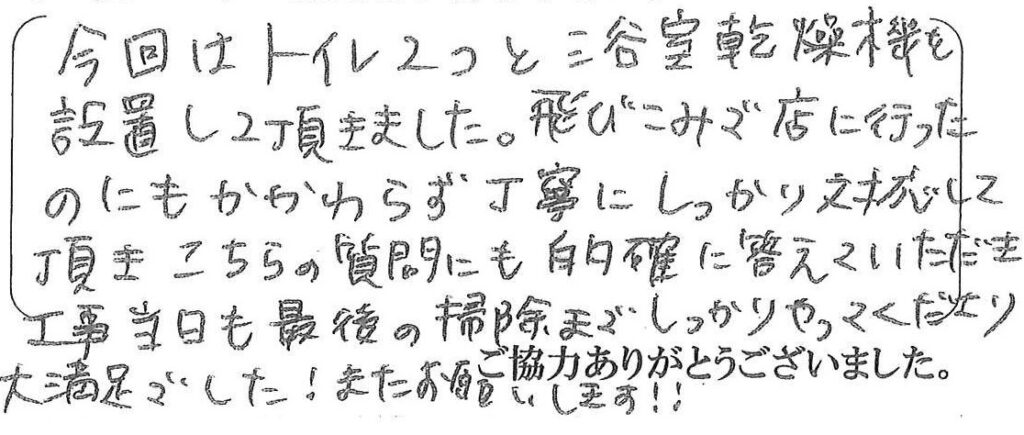 今回はトイレ2つと浴室乾燥機を
設置して頂きました。飛びこみで店に行った
のにもかかわらず丁寧にしっかり対応して
頂きこちらの質問にも的確に答えていただき
工事当日も最後の掃除までしっかりやってくださり
ご協力ありがとうございました。
大満足でした!またお願いします!!